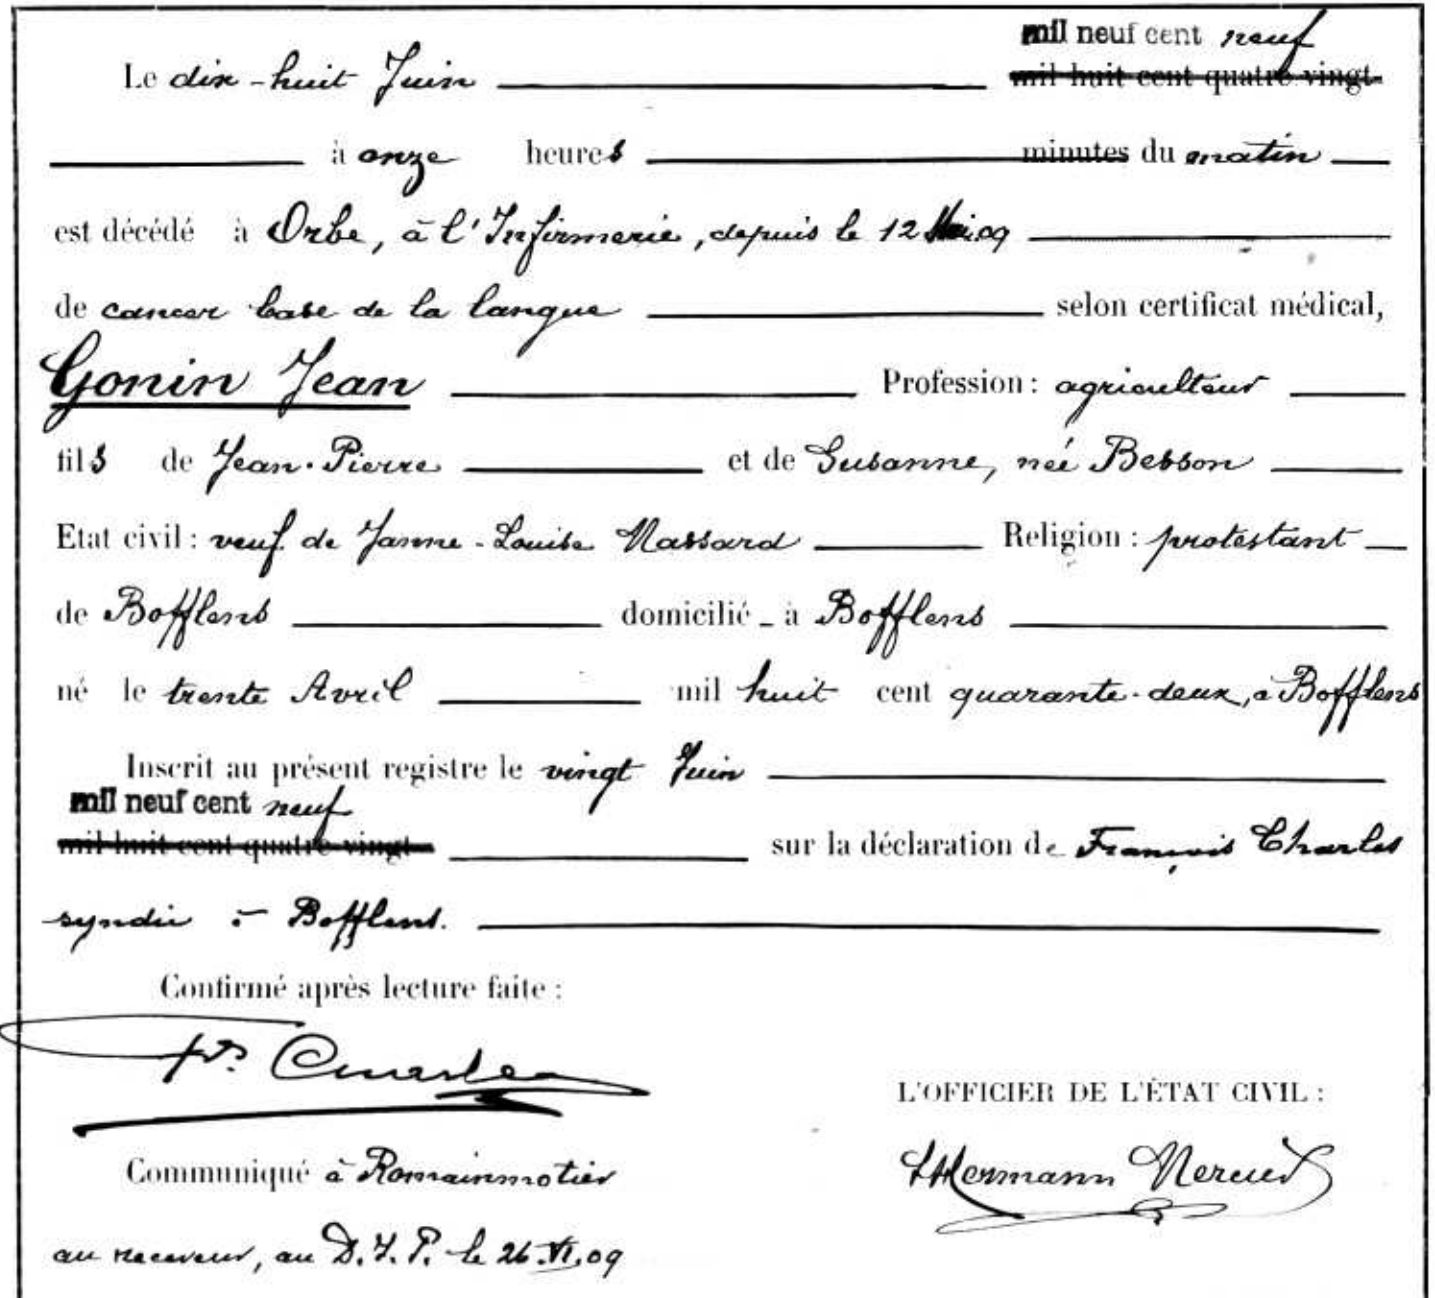 mil neuf cent neuf
Le dix-huit Juin mil huit cent quatre vingt
à onze heures minutes du matin
est décédé à Orbe, à l'Infirmerie, depuis le 12 Mai 09
de cancer base de la langue selon certificat médical,
Gonin Jean Profession : agriculteur
fils de Jean-Pierre et de Susanne, née Besson
Etat civil : veuf de Janne-Louise Massard Religion : protestant
de Bofflens domicilié à Bofflens
né le trente Avril mil huit cent quarante-deux, à Bofflens
Inscrit au présent registre le vingt Juin
mil neuf cent neuf
mil huit cent quatre vingt sur la déclaration de François Charles
syndic à Bofflens.
Confirmé après lecture faite :
L'OFFICIER DE L'ÉTAT CIVIL :
Communiqué à Romainmotier
au receveur, au D. J. P. le 26.VI.09